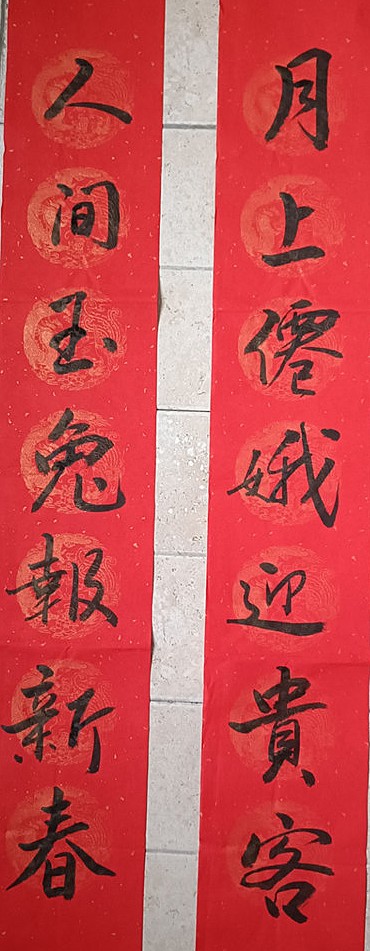 月上僊娥迎貴客
人间玉兔報新春